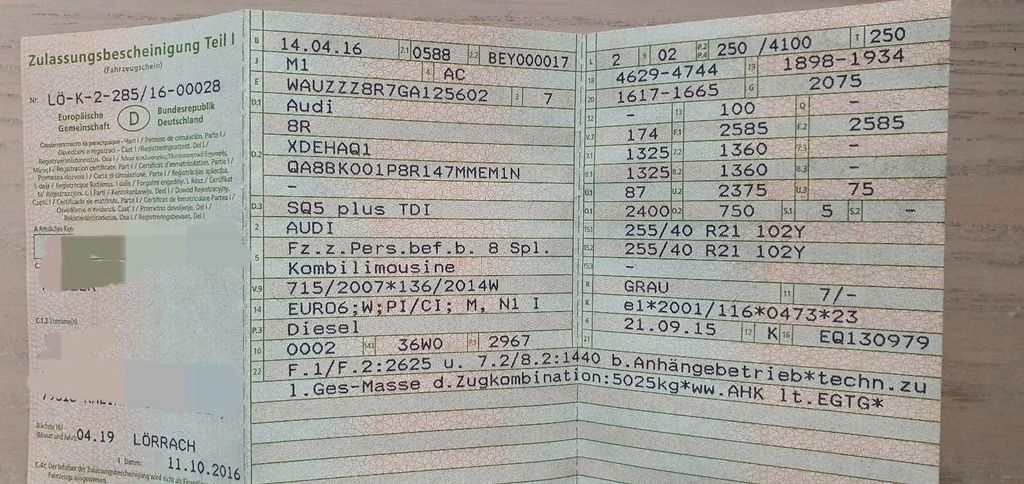 Zulassungsbescheinigung Teil I
(Fahrzeugschein)
Nr. LÖ-K-2-285/16-00028
Europäische Gemeinschaft D Bundesrepublik Deutschland
A Amtliches Ken
C
C.1.2 Vorname(n)
Nächste HU
(Monat und Jahr) 04.19 LÖRRACH
I Datum: 11.10.2016
C.4c Der Inhaber der Zulassungsbescheinigung wird nicht als
Fahrzeugs ausgewiesen.
B 14.04.16 2.1 0588 2.2 BEY000017
J M1 4 AC
E WAUZZZ8R7GA125602 3 7
D.1 Audi
8R
D.2 XDEHAQ1
QA8BK001P8R147MMEM1N
–
D.3 SQ5 plus TDI
2 AUDI
5 Fz.z.Pers.bef.b. 8 Spl.
Kombilimousine
V.9 715/2007*136/2014W
14 EURO6;W;PI/CI; M, N1 I
P.3 Diesel
10 0002 14.1 36W0 P.1 2967
22 F.1/F.2:2625 u. 7.2/8.2:1440 b.Anhängebetrieb*techn.zu
l.Ges-Masse d.Zugkombination:5025kg*ww.AHK lt.EGTG*
L 2 9 02 P.2 P.4 250 /4100 T 250
18 4629-4744 19 1898-1934
20 1617-1665 G 2075
12 – 13 100 Q –
V.7 174 F.1 2585 F.2 2585
7.1 1325 7.2 1360 7.3 –
8.1 1325 8.2 1360 8.3 –
U.1 87 U.2 2375 U.3 75
O.1 2400 O.2 750 S.1 5 S.2 –
15.1 255/40 R21 102Y
15.2 255/40 R21 102Y
15.3 –
R GRAU 11 7/-
K e1*2001/116*0473*23
6 21.09.15 17 K 16 EQ130979
21